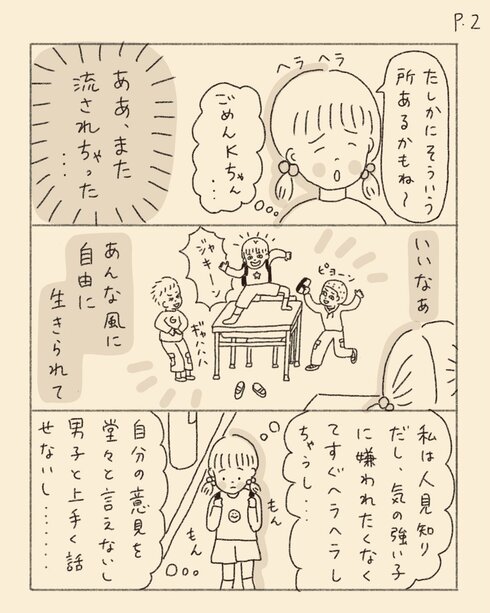 P.2
たしかにそういう
所あるかもね〜
ヘラヘラ
ごめんKちゃん
...
ああ、また
流されちゃった
...
いいなぁ
ピョーン
ジャキーン
ギャハハハ
あんな風に
自由に
生きられて
私は人見知り
だし、気の強い子
に嫌われたくなく
てすぐヘラヘラし
ちゃうし...
もん
もん
自分の意見を
堂々と言えないし
男子と上手く話
せないし........